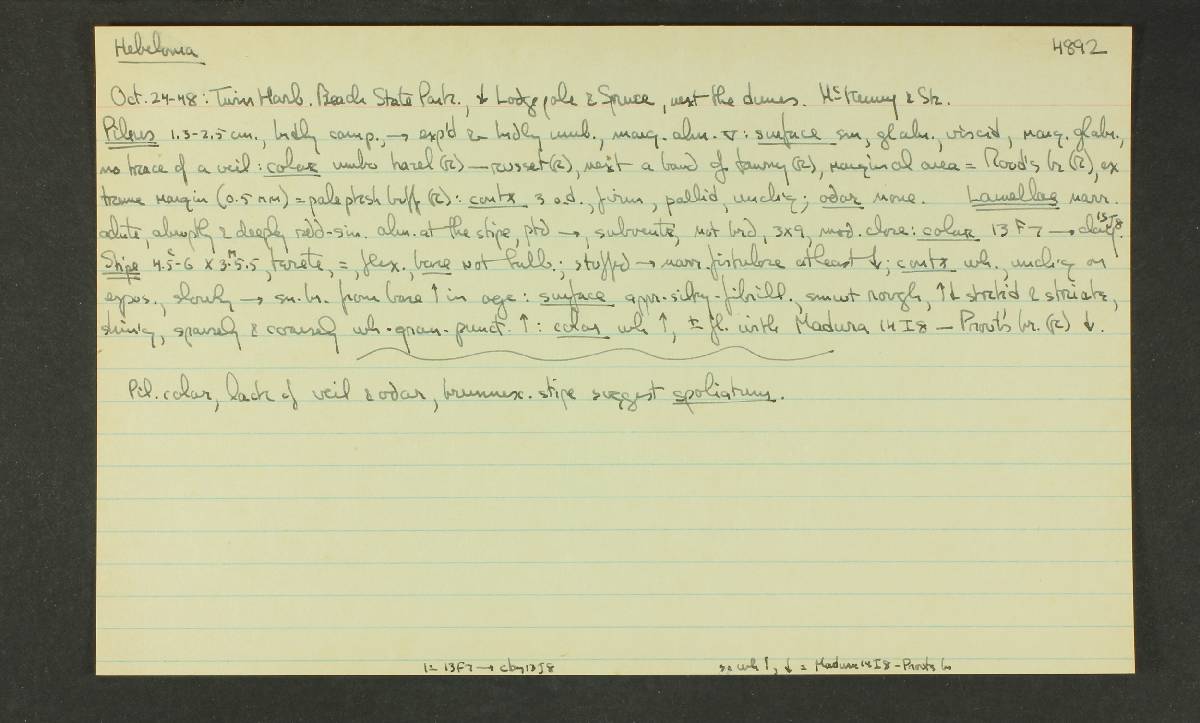 Hebeloma 4892
Oct. 24-48: Twin Harb. Beach State Park., ↓ Lodgepole & Spruce, next the dunes. McKenny & Stz.
Pileus 1.3-2.5 cm., brdly camp., → exp'd & brdly umb., marg. alw. ▽: surface sm, glabr., viscid, marg. glabr.,
no trace of a veil: color umbo hazel (R) — russet (R), next a band of tawny (R), marginal area = Rood's br (R), ex
treme margin (0.5 mm) = pale pksh buff (R): contx 3 o.d., firm, pallid, unchg; odor none. Lamellae narr.
adnate, abruptly & deeply rdd-sin. alw. at the stipe, ptd →, subventr, not brd, 3x9, mod. close: color 13 F 7 → clay 13J8.
Stipe 4.5-6 cx 3.5-5.5 m, terete, =, flex., base not bulb.; stuffed → narr. fistulose at least ↓; contx wh., unchg on
expos., slowly → sn. br. from base ↑ in age: surface appr. silky-fibrill., smwt rough, ↑↓ strt'd & striate,
shiny, sparsely & coarsely wh-gran-punct. ↑: color wh ↑, ± fl. with Madura 14 I 8 — Prout's br. (R) ↓.
Pil. color, lack of veil & odor, brunnesc. stipe suggest spoliatum.
l = 13F7 → clay 13J8 wh ↑, ↓ = Madura 14 I 8 - Prouts br